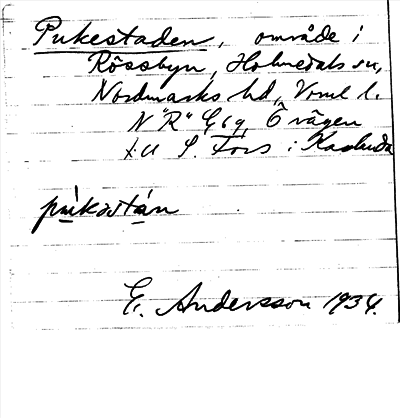 Pukestaden, område i
Rössbyn, Holmedals sn,
Nordmarks hd, Vrml l.
N "R" G, Ö vägen
t.ll S. Fors i Karlanda
E. Andersson 1934.